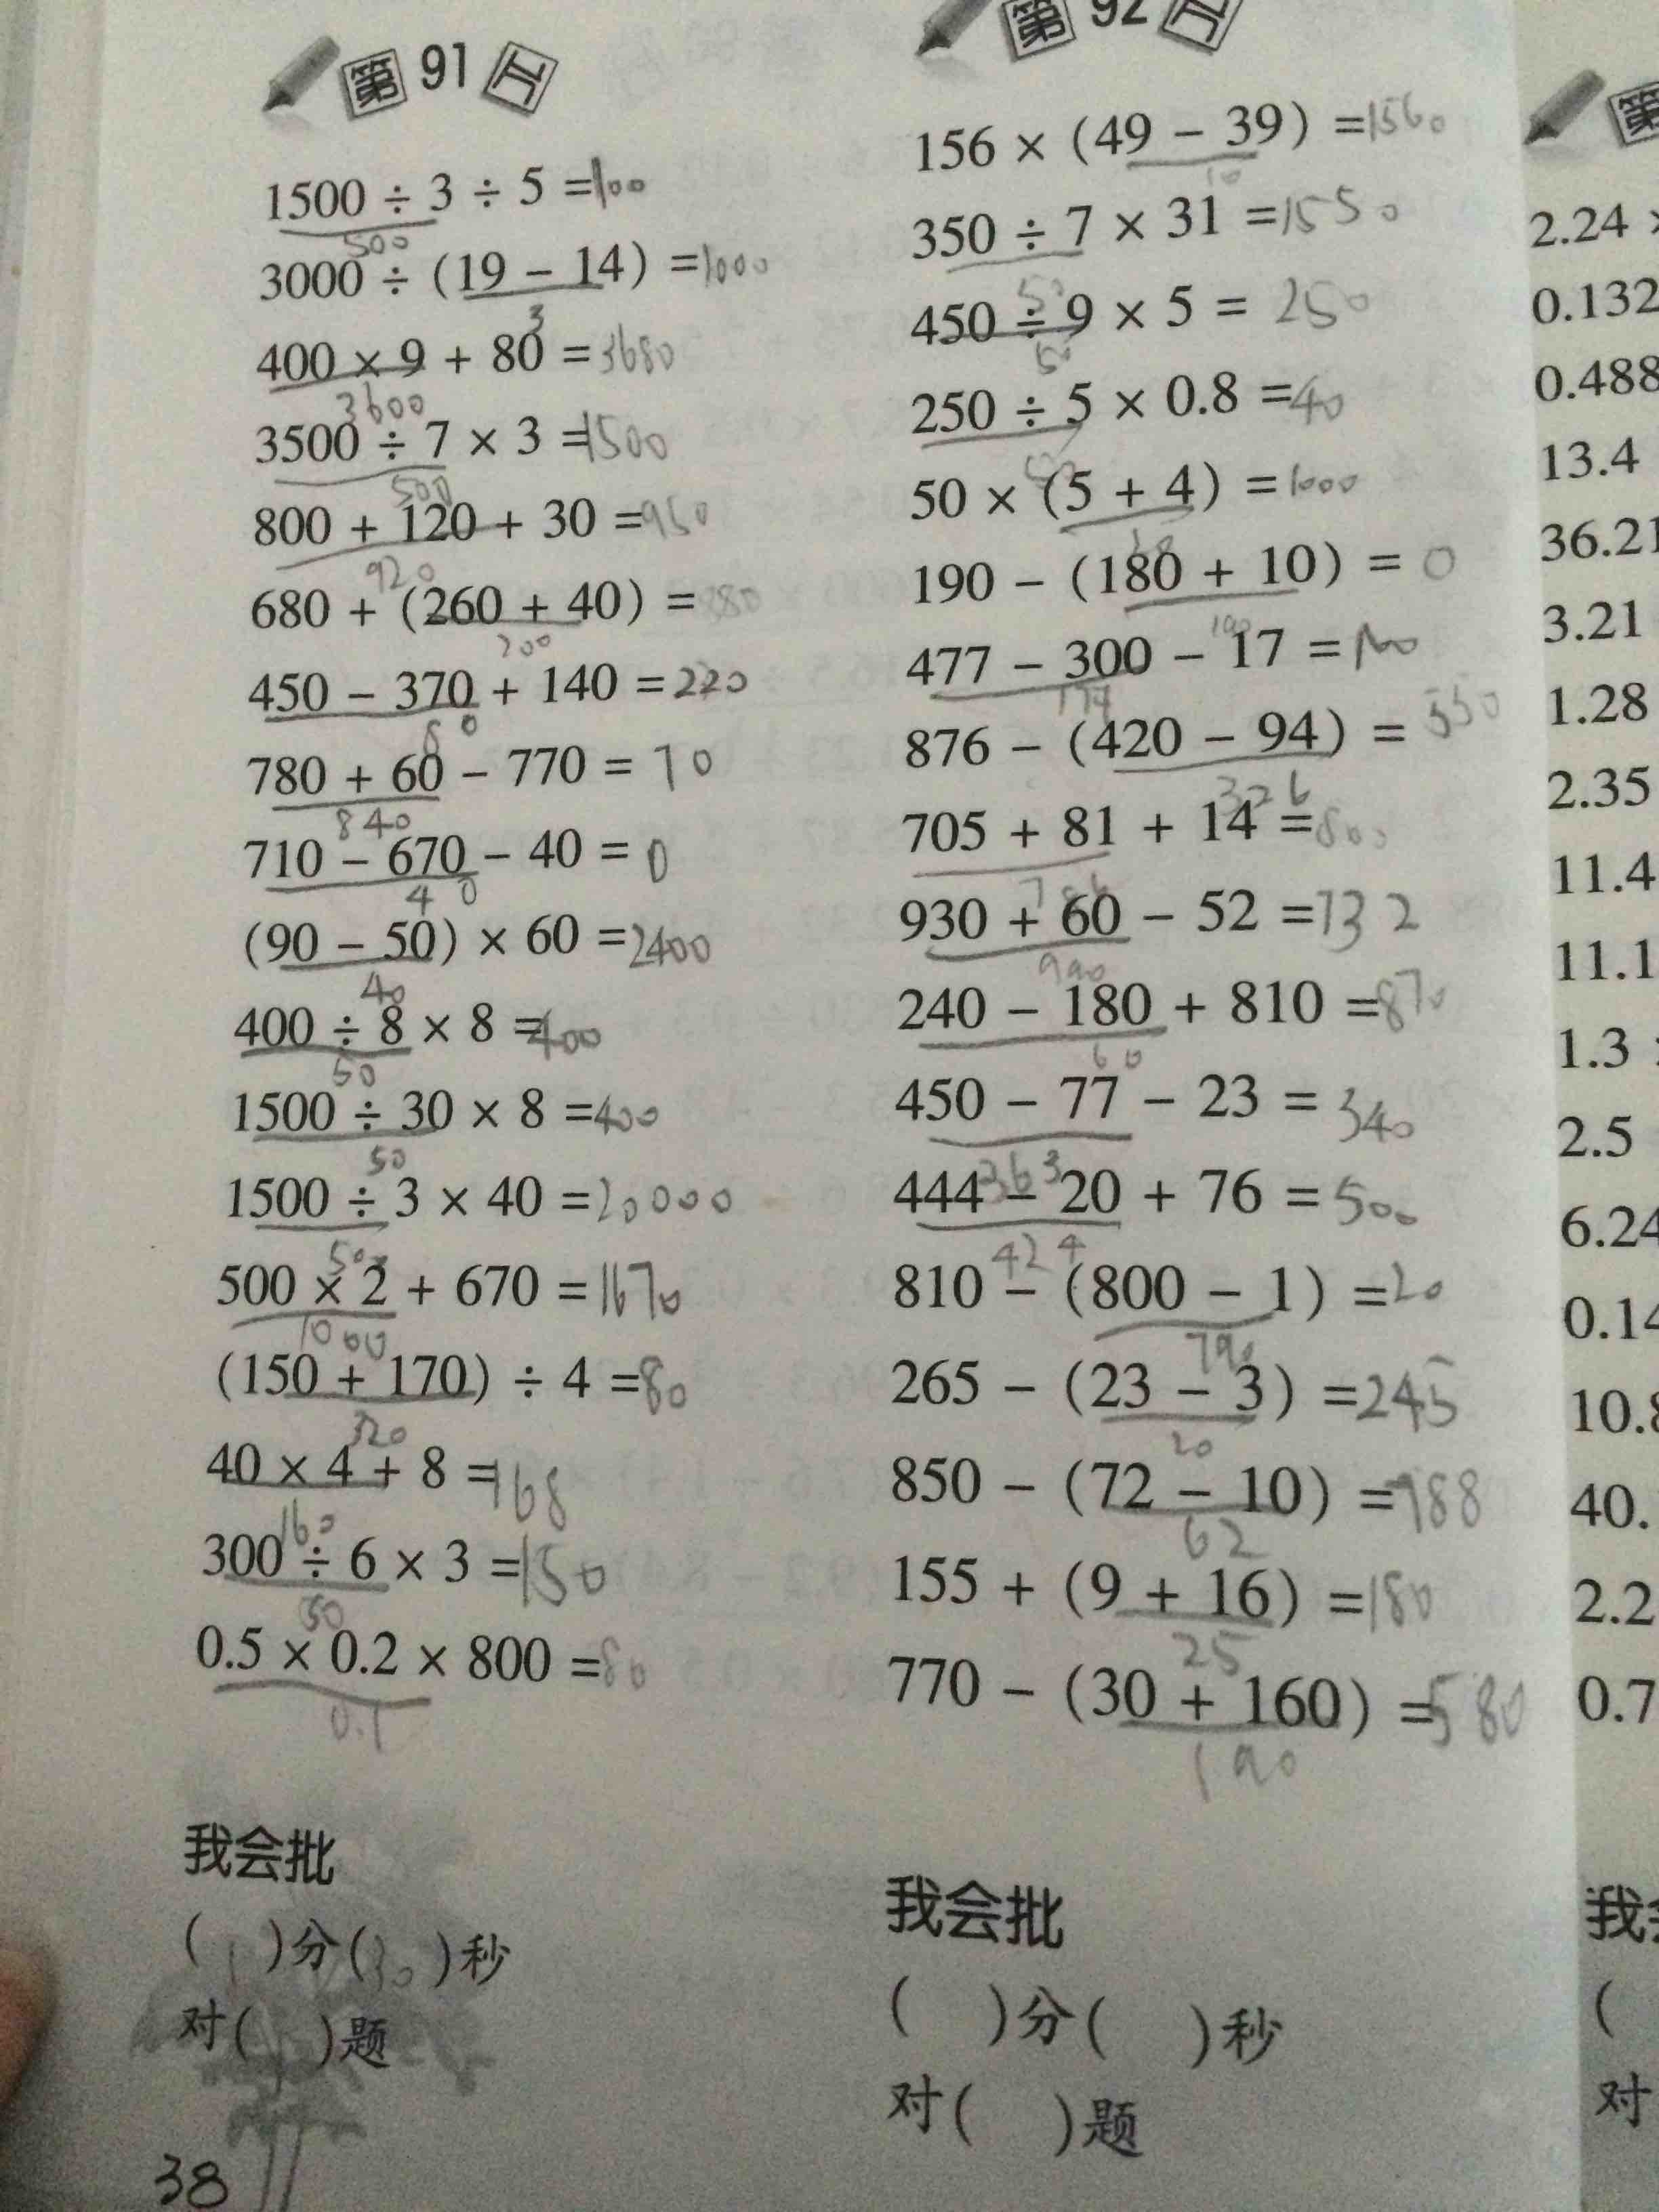 第 91 工
1500 ÷ 3 ÷ 5 =100
500
3000 ÷ (19 − 14) =1000
3
400 × 9 + 80 =3680
3600
3500 ÷ 7 × 3 =1500
500
800 + 120 + 30 =950
920
680 + (260 + 40) =
200
450 − 370 + 140 =220
80
780 + 60 − 770 = 70
840
710 − 670 − 40 = 0
40
(90 − 50) × 60 =2400
40
400 ÷ 8 × 8 =400
50
1500 ÷ 30 × 8 =400
50
1500 ÷ 3 × 40 =20000
500
500 × 2 + 670 =1670
1000
(150 + 170) ÷ 4 =80
320
40 × 4 + 8 =168
160
300 ÷ 6 × 3 =150
50
0.5 × 0.2 × 800 =80
0.1
我会批
(1)分(30)秒
对( )题
38
第 92 工
156 × (49 − 39) =1560
10
350 ÷ 7 × 31 =1550
50
450 ÷ 9 × 5 = 250
50
250 ÷ 5 × 0.8 =40
50 × (5 + 4) =1000
190 − (180 + 10) = 0
190
477 − 300 − 17 =
177
876 − (420 − 94) = 550
326
705 + 81 + 14 =800
786
930 + 60 − 52 =732
990
240 − 180 + 810 =870
60
450 − 77 − 23 = 340
363
444 − 20 + 76 = 500
424
810 − (800 − 1) =20
790
265 − (23 − 3) =245
20
850 − (72 − 10) =788
62
155 + (9 + 16) =180
25
770 − (30 + 160) =580
190
我会批
( )分( )秒
对( )题
第
2.24
0.132
0.488
13.4
36.21
3.21
1.28
2.35
11.4
11.1
1.3
2.5
6.24
0.14
10.8
40.
2.2
0.7
我
(
对